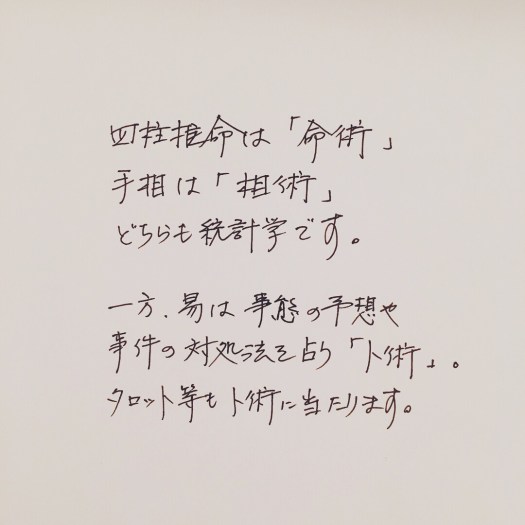 四柱推命は「命術」
手相は「相術」
どちらも統計学です。
一方、易は事態の予想や
事件の対処法を占う「卜術」。
タロット等も卜術に当たります。